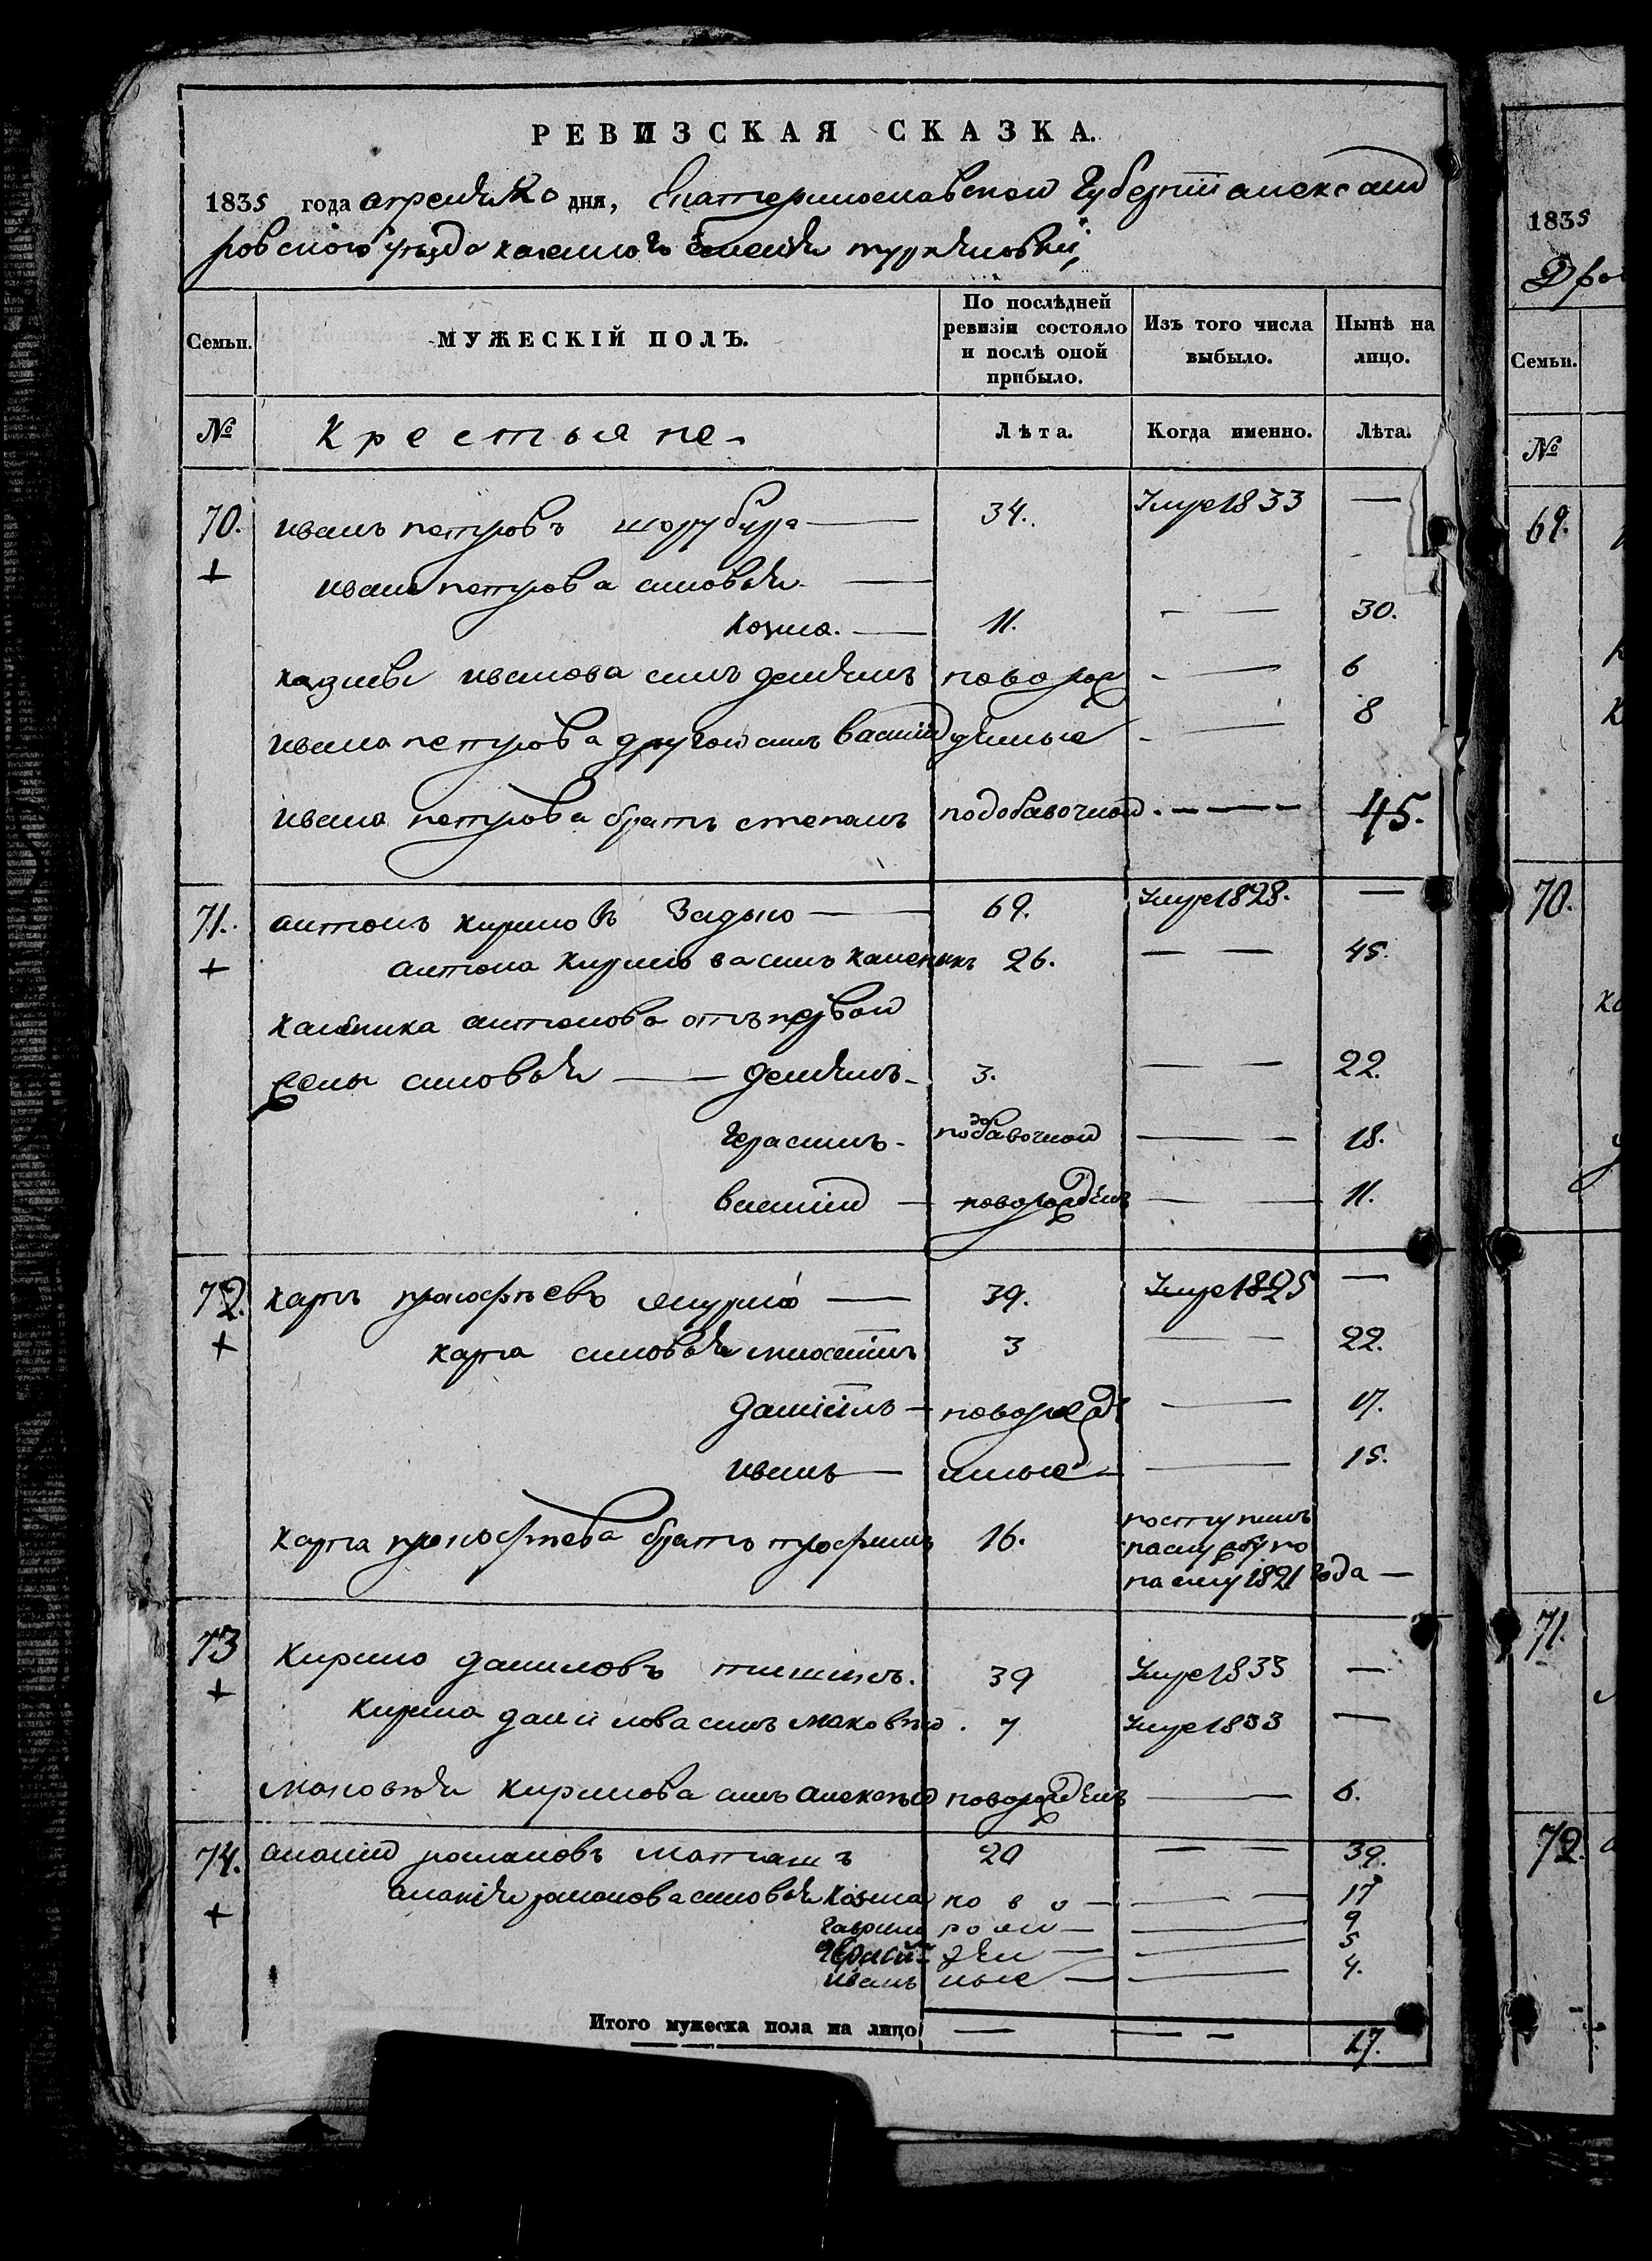 РЕВИЗСКАЯ СКАЗКА.
1835 года апреля 20 дня, Екатеринославской Губерніи александ
ровского уезда казенного селенія
Семьи. МУЖЕСКІЙ ПОЛЪ. По послѣдней ревизіи состояло и послѣ оной прибыло. Изъ того числа выбыло. Нынѣ на лицо.
№ Крестьяне Лѣта. Когда именно. Лѣта.
70. иванъ петровъ шорубура — 34. Умре 1833 —
+ ивана петрова сыновья —
козма. — 11. — — 30.
иванова сынъ демянъ новорож — 6
ивана петрова другой сынъ василій денные — 8
ивана петрова братъ степанъ подобавочной — — — 45.
71. антонъ кириловъ Задыю — 69. Умре 1828. —
+ антона кирилова сынъ каленикъ 26. — — 45.
каленика антонова отъ первой
жены сыновья — демянъ 3. — — 22.
герасимъ подобавочной — — 18.
василій — новорожденъ — — 11.
72. карпъ прокофьевъ — 39. Умре 1825 —
+ карпа сыновья 3 — — 22.
даніилъ — новорожде — 17.
иванъ — нные — 15.
карпа прокофьева братъ трофимъ 16. поступилъ
на службу по
набору 1821 года —
73 Кирило даниловъ 39 Умре 1833 —
+ Кирила данилова сынъ маковѣй. 7 Умре 1833 —
маковѣя кирилова сынъ алексѣй новорожденъ — 6.
74. ананій романовъ маташъ 20 — — 39.
+ ананія романова сыновья козма но в о — — 17
гаврило рож — — 9
— ден — — 5
иванъ ные — — 4.
Итого мужеска пола на лицо — — — 17.
1835
Семьи.
№
69.
70.
71.
72.